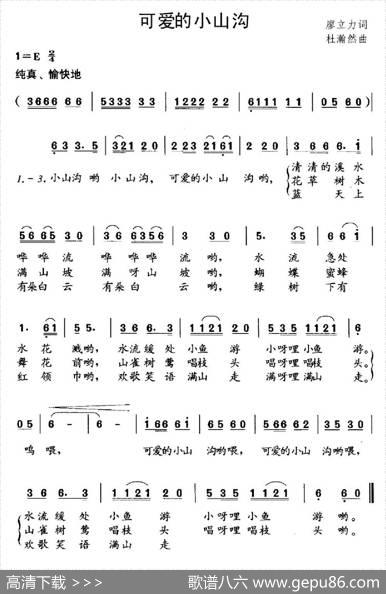 可爱的小山沟
廖立力词
杜瀚然曲
1=E 2/4
纯真、愉快地
( 3666 66 | 5333 33 | 1222 22 | 6111 11 | 0 5 |
6 3 3. 5 | 321 20 | 223 2161 | 2 20 | 36 6. i |
1.-3.小山沟 哟 小山沟, 可爱的小山 沟哟, 清清的溪水
花草树木
蓝天上
5665 30 | 36 6356 | 3 30 | 5. 35 | 66 i |
哗哗流 哗哗哗 流哟, 水流急处
满山坡 满呀山 坡哟, 蝴蝶蜜蜂
有朵白云 有朵白云 云哟, 绿树下有
水花溅哟, 水流缓处小鱼游 小呀哩小鱼游。
舞花前哟, 山雀树莺唱枝头 唱呀哩唱枝头。
红领巾哟, 欢歌笑语满山走 满呀哩满山走。
05 | 6 - | 6 - | i66 6i | 65 50 | i66 6i | 65 20 |
呜喂, 可爱的小山沟哟喂, 可爱的小山沟哟喂,
36 6. 3 | 1121 20 | 1121 i | 6 | 6 0 ‖
水流缓处小鱼游 小呀哩小鱼游哟。
山雀树莺唱枝头 唱呀哩唱枝头哟。
欢歌笑语满山走
高清下载 >>>
歌谱八六 www.gepu86.com